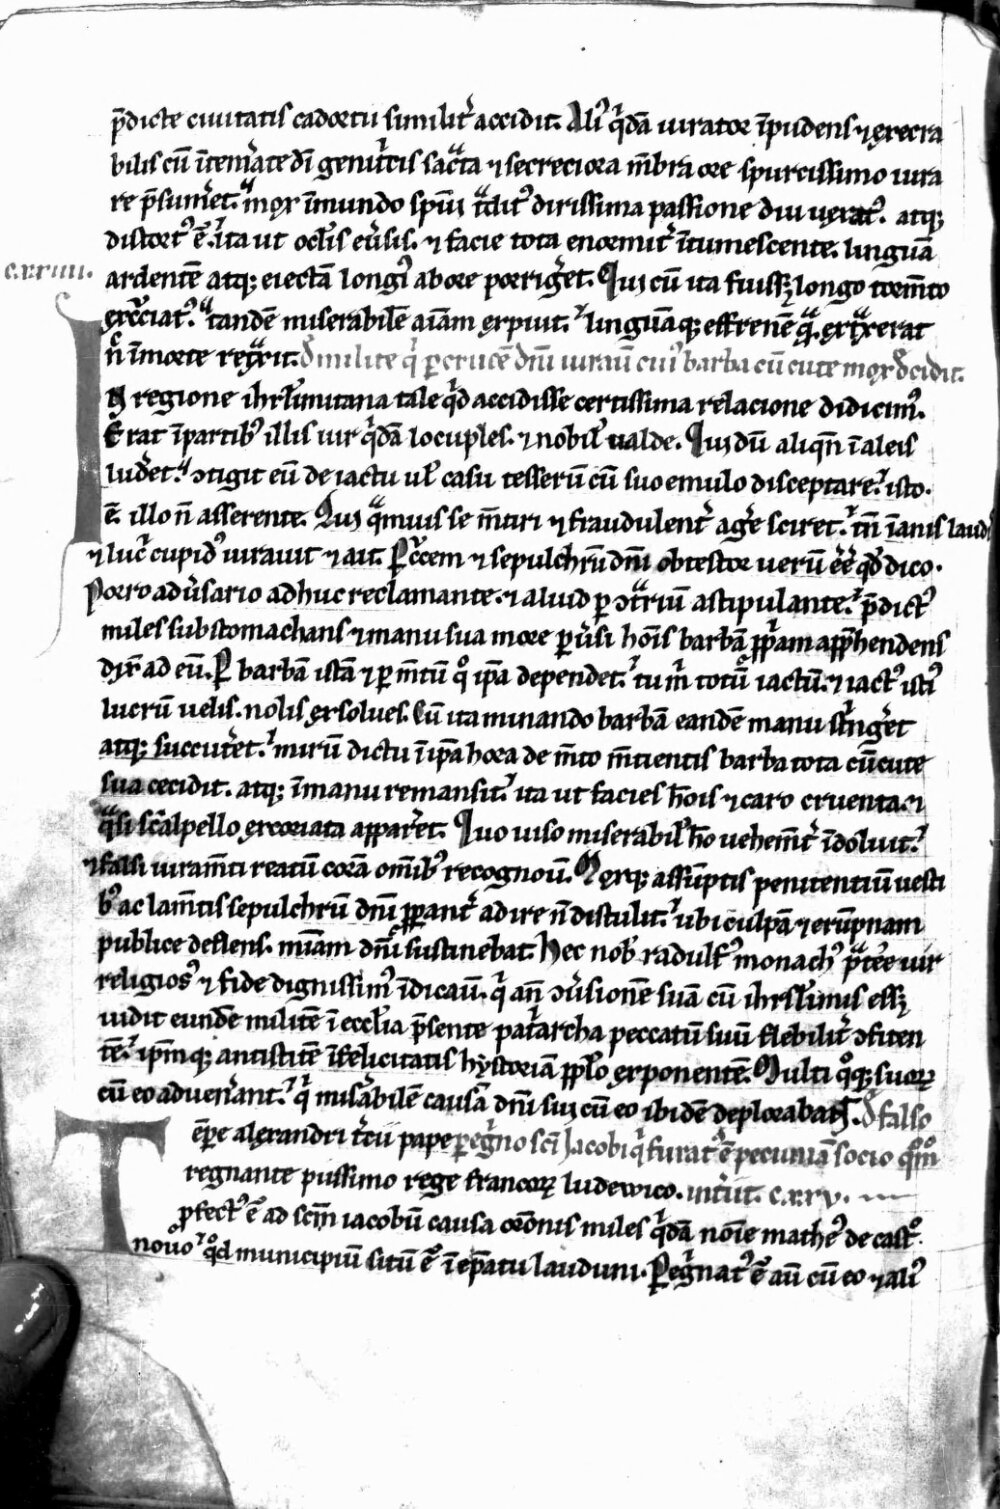 p̄dicte ciuitatis cadortu similit᷑ accidit. Aliꝰ qͥdā iurator īpudens ⁊ execra
bilis cū ītem̄ate dī genit᷑cis sacͣta ⁊ secreciora m̄bra ore spurcissimo iura
re p̄sum̄et. mox īmundo spūi tͣditꝰ dirissima passione diu uexatꝰ. atqꝫ
distortꝰ ē. ita ut ocl̄is eūsis. ⁊ facie tota enormit᷑ ītumescente. linguā
c.xxiiii.
ardentē atqꝫ eiectā longiꝰ ab ore porriḡet. Qui cū ita fuissꝫ longo torm̄to
excͣciatꝰ. tandē miserabilē aīam expiuit. ⁊ linguā qꝫ effrenē qͣ. extͣxerat
n̄ ī morte retͣxit. D̄ milite qͥ ꝑ crucē dn̄i iurauit cuiꝰ barba cū cute mox d̄cidit.
In regione ihrl̄imitana tale qͥd accidisse certissima relacione didicimꝰ.
Erat ī partibꝰ illis uir qͥdā locuples. ⁊ nobil᷑ ualde. Qui dū aliqn̄ ī aleis
lud̄et. ↄtigit eū de iactu ul᷑ casu tesserū cū suo emulo disceptare. isto.
ē. illo n̄ asserente. Qui qͣmuis se m̄tiri ⁊ fraudulent᷑ aḡe sciret. tn̄ īanis laud
⁊ luc᷑ cupidꝰ iurauit ⁊ ait. Ꝑ c᷑cem ⁊ sepulchrū dn̄i obtestor uerū ēē qd̄ dico.
Porro adūsario adhuc reclamante. ⁊ aliud ꝑ ↄtͣriū astipulante. p̄dictꝰ
miles substomachans ⁊ manu sua more ꝑūsi hoīs barbā ꝓpͥam app̄hendens
dix̄ ad eū. Ꝑ barbā istā ⁊ ꝑ m̄tū qͦ ip̄a dependet. tu m̄ totū iactū. ⁊ iactꝰ istiꝰ
lucrū uelis. nolis exsolues. Cū ita minando barbā eandē manu stͥnḡet
atqꝫ succut᷑et. mirū dictu ī ip̄a hora de m̄to m̄tientis barba tota cū cute
sua cecidit. atqꝫ ī manu remansit. ita ut facies hoīs ⁊ caro cruenta. ⁊
qͣsi scalpello excoriata appar̄et. Quo uiso miserabil᷑ hō uehem̄t᷑ īdoluit.
⁊ falsi iuram̄ti reatū corā om̄ibꝰ recognou̅. Moxqꝫ assūptis penitentiū uesti
bꝰ ac lam̄tis sepulchrū dn̄i ꝓꝑant᷑ adire n̄ distulit. ubi culpā ⁊ erūpnam
publice deflens. mīam dn̄i sustinebat. Hec nob᷑ radulfꝰ monachꝰ pͣt᷑ee uir
religiosꝰ ⁊ fide dignissimꝰ īdicau̅. qͥ an̄ ↄūsionē suā cū ihrl̄imis essꝫ
uidit eundē militē ī eccl̄ia p̄sente pat᷑archa peccatū suū flebilit᷑ ↄfiten
tē. ip̄mqꝫ antistitē īfelicitatis hystoriam ppl̄o exponentē. Multi qͦqꝫ suoꝝ
cū eo aduen̄ant. qͥ mis̄abilē causā dn̄i sui cū eo ibidē deplorabant. D̄ falso
Tēpr̄e alexandri t᷑cii pape peḡno scī iacobi qͥ furatꝰ ē pecuniā socio
regnante piissimo rege francoꝝ ludewico. int᷑iit. c.xxv.
ꝓfectꝰ ē ad scm̄ iacobū causa orōnis miles qͥdā noīe matheꝰ de cast᷑o
nouo qd̄ municipiū sitū ē ī ep̄atu lauduni. Peḡnatꝰ ē aū cū eo ⁊ aliꝰ